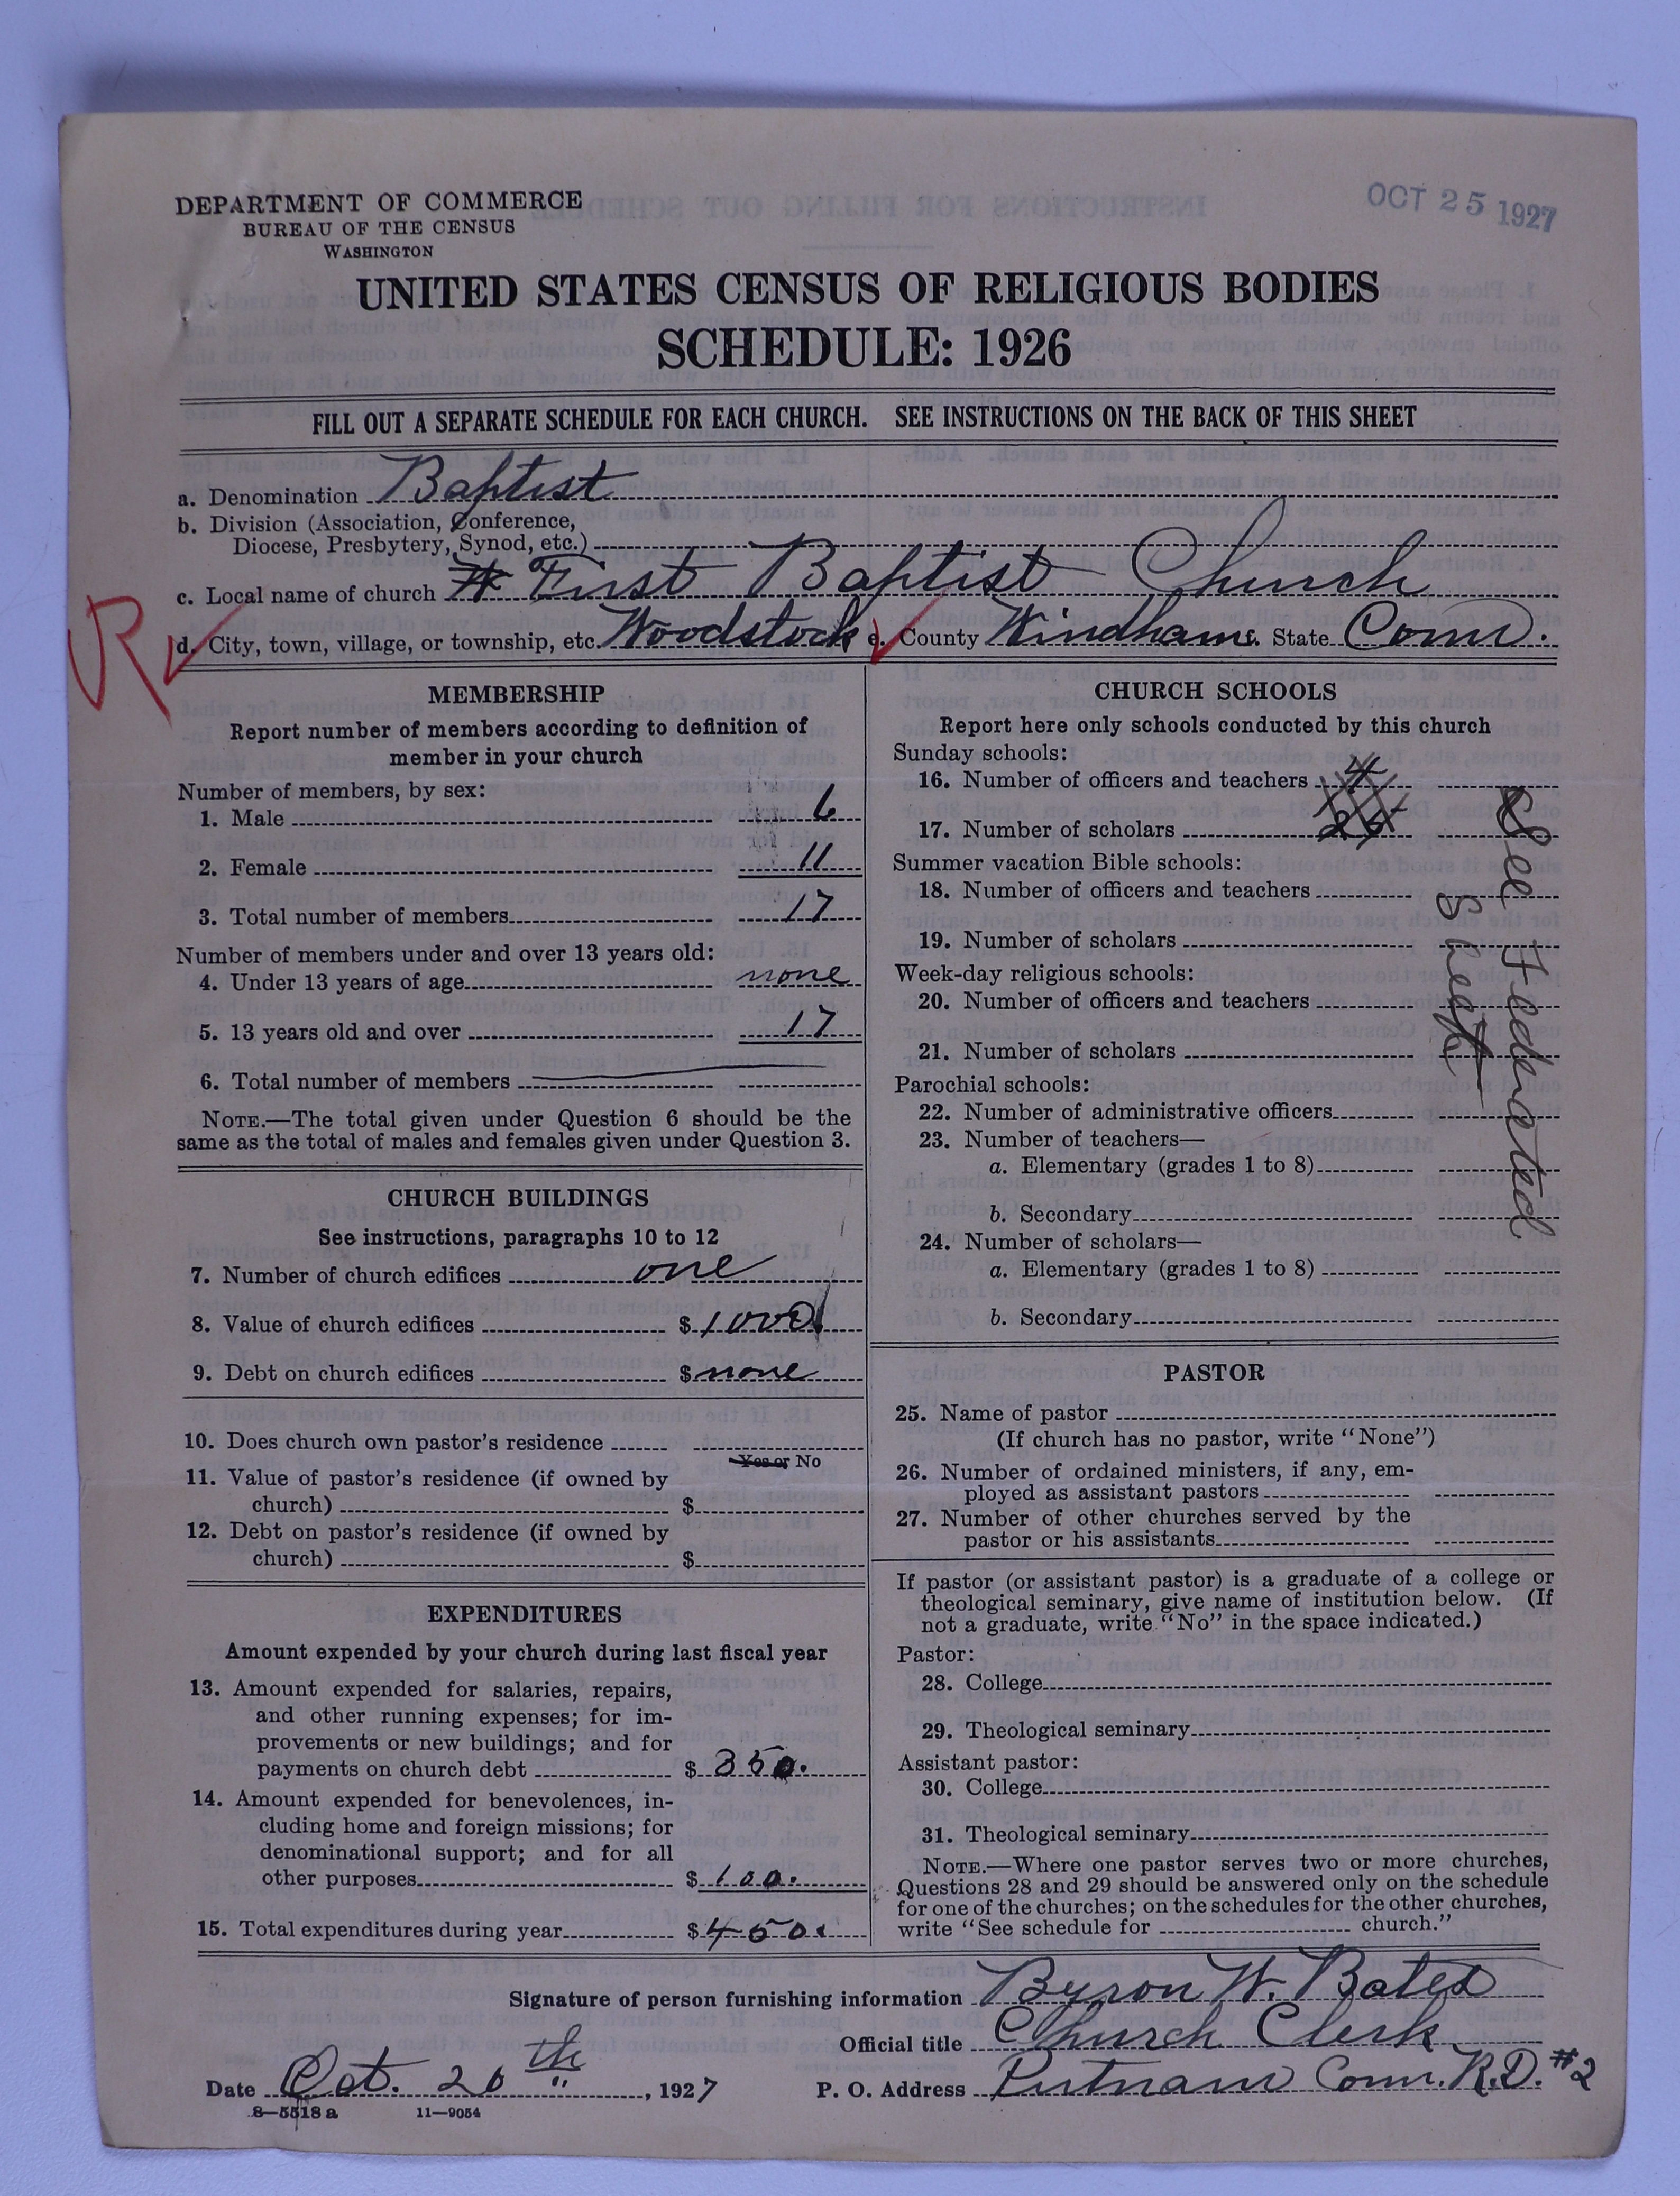 OCT 25 1927
DEPARTMENT OF COMMERCE
BUREAU OF THE CENSUS
WASHINGTON
UNITED STATES CENSUS OF RELIGIOUS BODIES
SCHEDULE: 1926
FILL OUT A SEPARATE SCHEDULE FOR EACH CHURCH. SEE INSTRUCTIONS ON THE BACK OF THIS SHEET
a. Denomination Baptist
b. Division (Association, Conference,
Diocese, Presbytery, Synod, etc.)
c. Local name of church First Baptist Church
R
d. City, town, village, or township, etc. Woodstock e. County Windham. State Conn.
MEMBERSHIP
Report number of members according to definition of
member in your church
Number of members, by sex:
1. Male 6
2. Female 11
3. Total number of members 17
Number of members under and over 13 years old:
4. Under 13 years of age none
5. 13 years old and over 17
6. Total number of members
NOTE.—The total given under Question 6 should be the
same as the total of males and females given under Question 3.
CHURCH BUILDINGS
See instructions, paragraphs 10 to 12
7. Number of church edifices one
8. Value of church edifices $ 1000
9. Debt on church edifices $ none
10. Does church own pastor's residence
Yes or No
11. Value of pastor's residence (if owned by
church) $
12. Debt on pastor's residence (if owned by
church) $
EXPENDITURES
Amount expended by your church during last fiscal year
13. Amount expended for salaries, repairs,
and other running expenses; for im-
provements or new buildings; and for
payments on church debt $ 350.
14. Amount expended for benevolences, in-
cluding home and foreign missions; for
denominational support; and for all
other purposes $ 100.
15. Total expenditures during year $ 450.
CHURCH SCHOOLS
Report here only schools conducted by this church
Sunday schools:
16. Number of officers and teachers 4
17. Number of scholars
Summer vacation Bible schools:
18. Number of officers and teachers
19. Number of scholars
Week-day religious schools:
20. Number of officers and teachers
21. Number of scholars
Parochial schools:
22. Number of administrative officers
23. Number of teachers—
a. Elementary (grades 1 to 8)
b. Secondary
24. Number of scholars—
a. Elementary (grades 1 to 8)
b. Secondary
See Federated
Sheet
PASTOR
25. Name of pastor
(If church has no pastor, write "None")
26. Number of ordained ministers, if any, em-
ployed as assistant pastors
27. Number of other churches served by the
pastor or his assistants
If pastor (or assistant pastor) is a graduate of a college or
theological seminary, give name of institution below. (If
not a graduate, write "No" in the space indicated.)
Pastor:
28. College
29. Theological seminary
Assistant pastor:
30. College
31. Theological seminary
NOTE.—Where one pastor serves two or more churches,
Questions 28 and 29 should be answered only on the schedule
for one of the churches; on the schedules for the other churches,
write "See schedule for church."
Signature of person furnishing information Byron W. Bates
Official title Church Clerk
Date Oct. 20th, 1927 P. O. Address Putnam Conn. R.D. #2
8—5518 a 11—9054